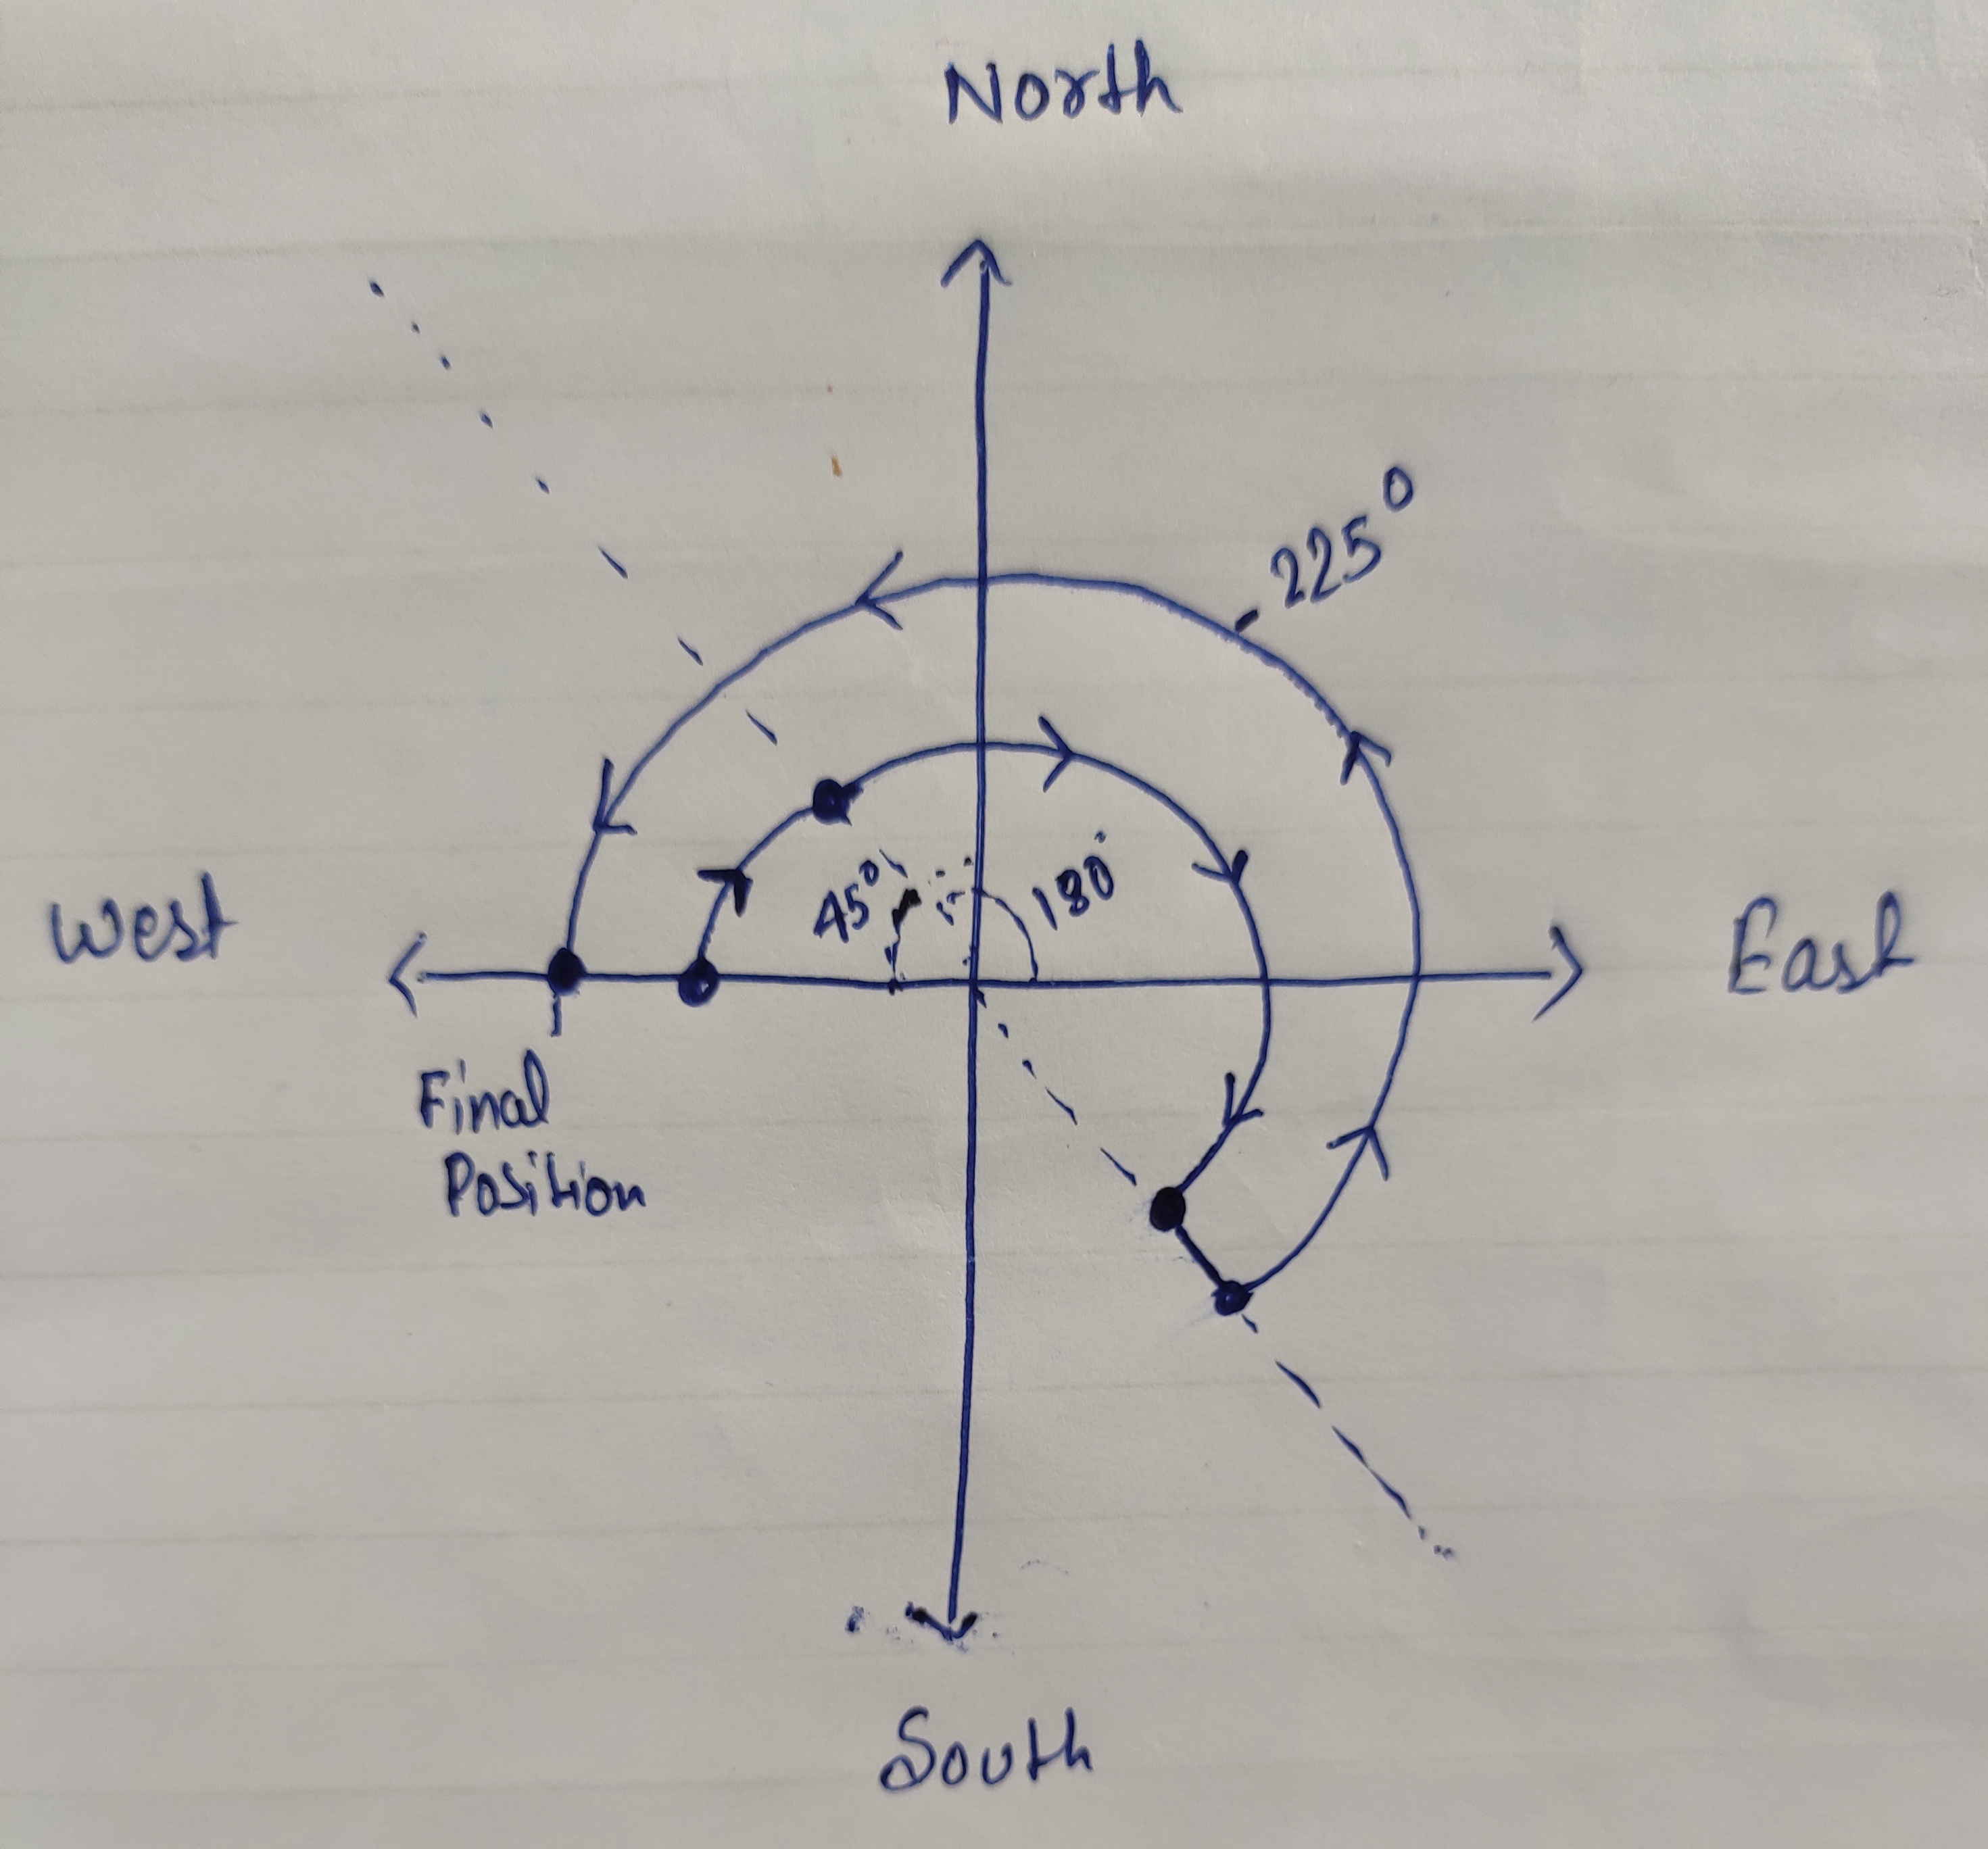 North
225°
45°
180°
West
East
Final
Position
South